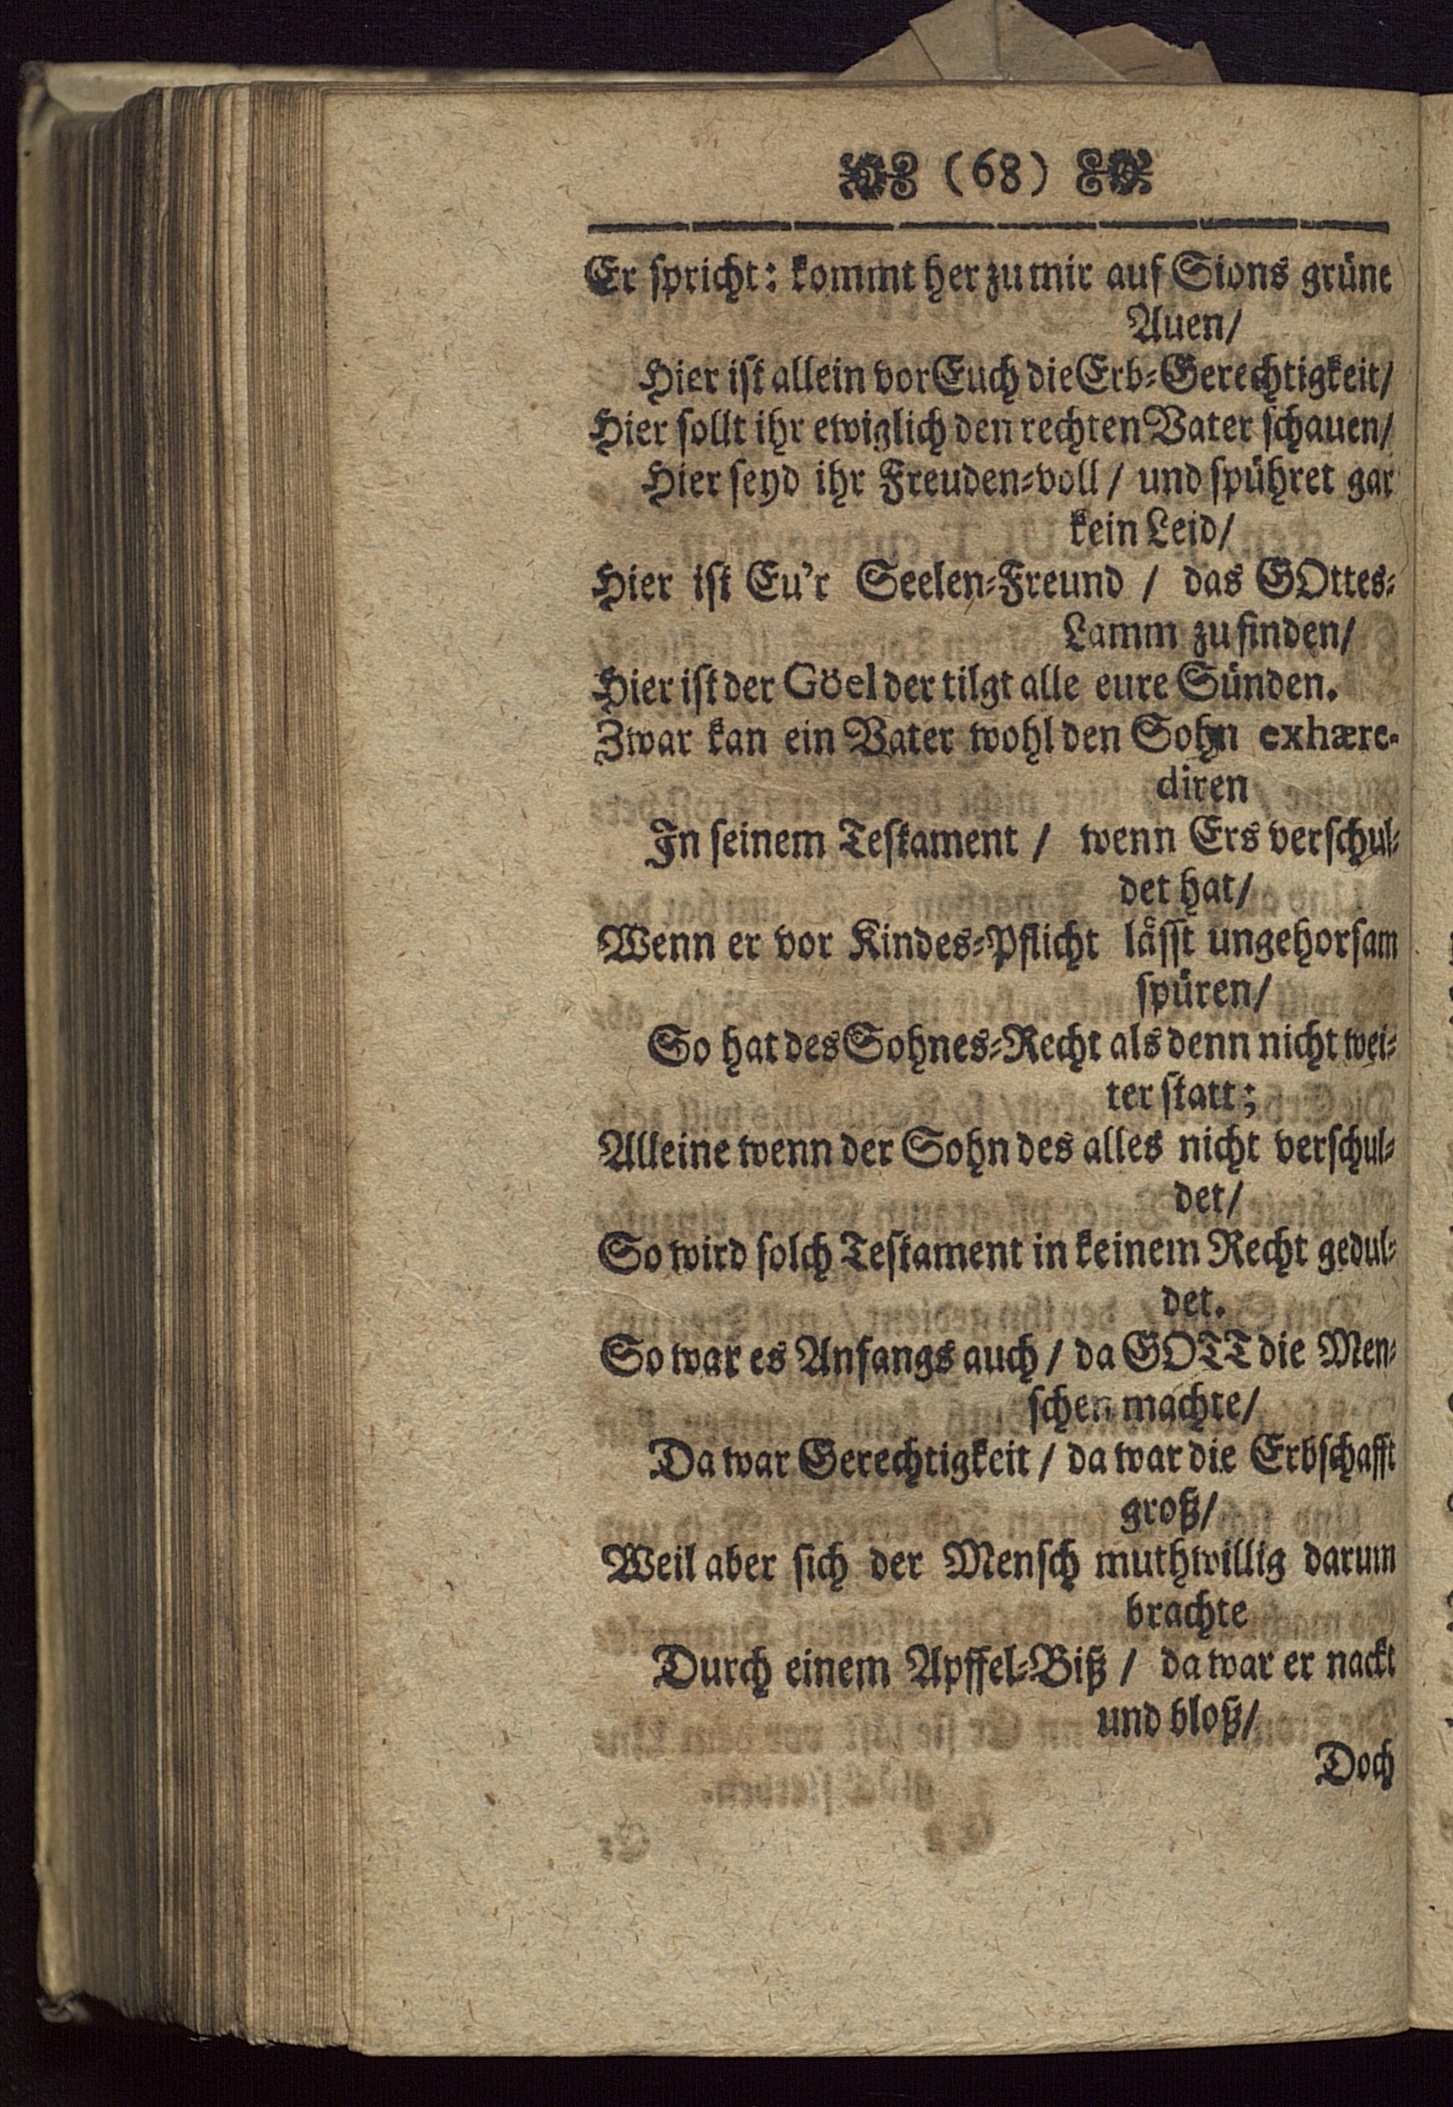 (68)
Er spricht: kommt her zu mir auf Sions grüne
Auen/
Hier ist allein vor Euch die Erb-Gerechtigkeit/
Hier sollt ihr ewiglich den rechten Vater schauen/
Hier seyd ihr Freuden-voll / und spühret gar
kein Leid/
Hier ist Eu'r Seelen-Freund / das GOttes-
Lamm zu finden/
Hier ist der Göel der tilgt alle eure Sünden.
Zwar kan ein Vater wohl den Sohn exhære-
diren
In seinem Testament / wenn Ers verschul-
det hat/
Wenn er vor Kindes-Pflicht lässt ungehorsam
spüren/
So hat des Sohnes-Recht als denn nicht wei-
ter statt;
Alleine wenn der Sohn des alles nicht verschul-
det/
So wird solch Testament in keinem Recht gedul-
det.
So war es Anfangs auch / da GOTT die Men-
schen machte/
Da war Gerechtigkeit / da war die Erbschafft
groß/
Weil aber sich der Mensch muthwillig darum
brachte
Durch einem Apffel-Biß / da war er nackt
und bloß/
Doch